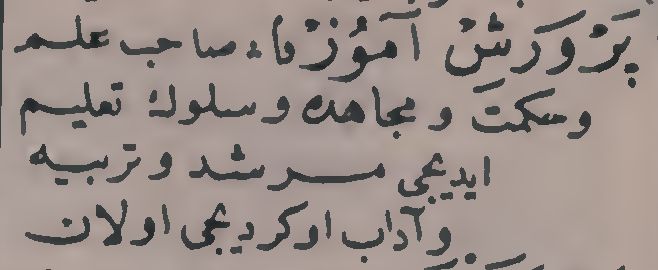 پَرْوَرِشْ آمُوزْ فا، صاحب علم
وحكمتَ و مجاهده و سلوك تعليم
ايديجى مرشد و تربيه
وآداب اوكرديجى اولان